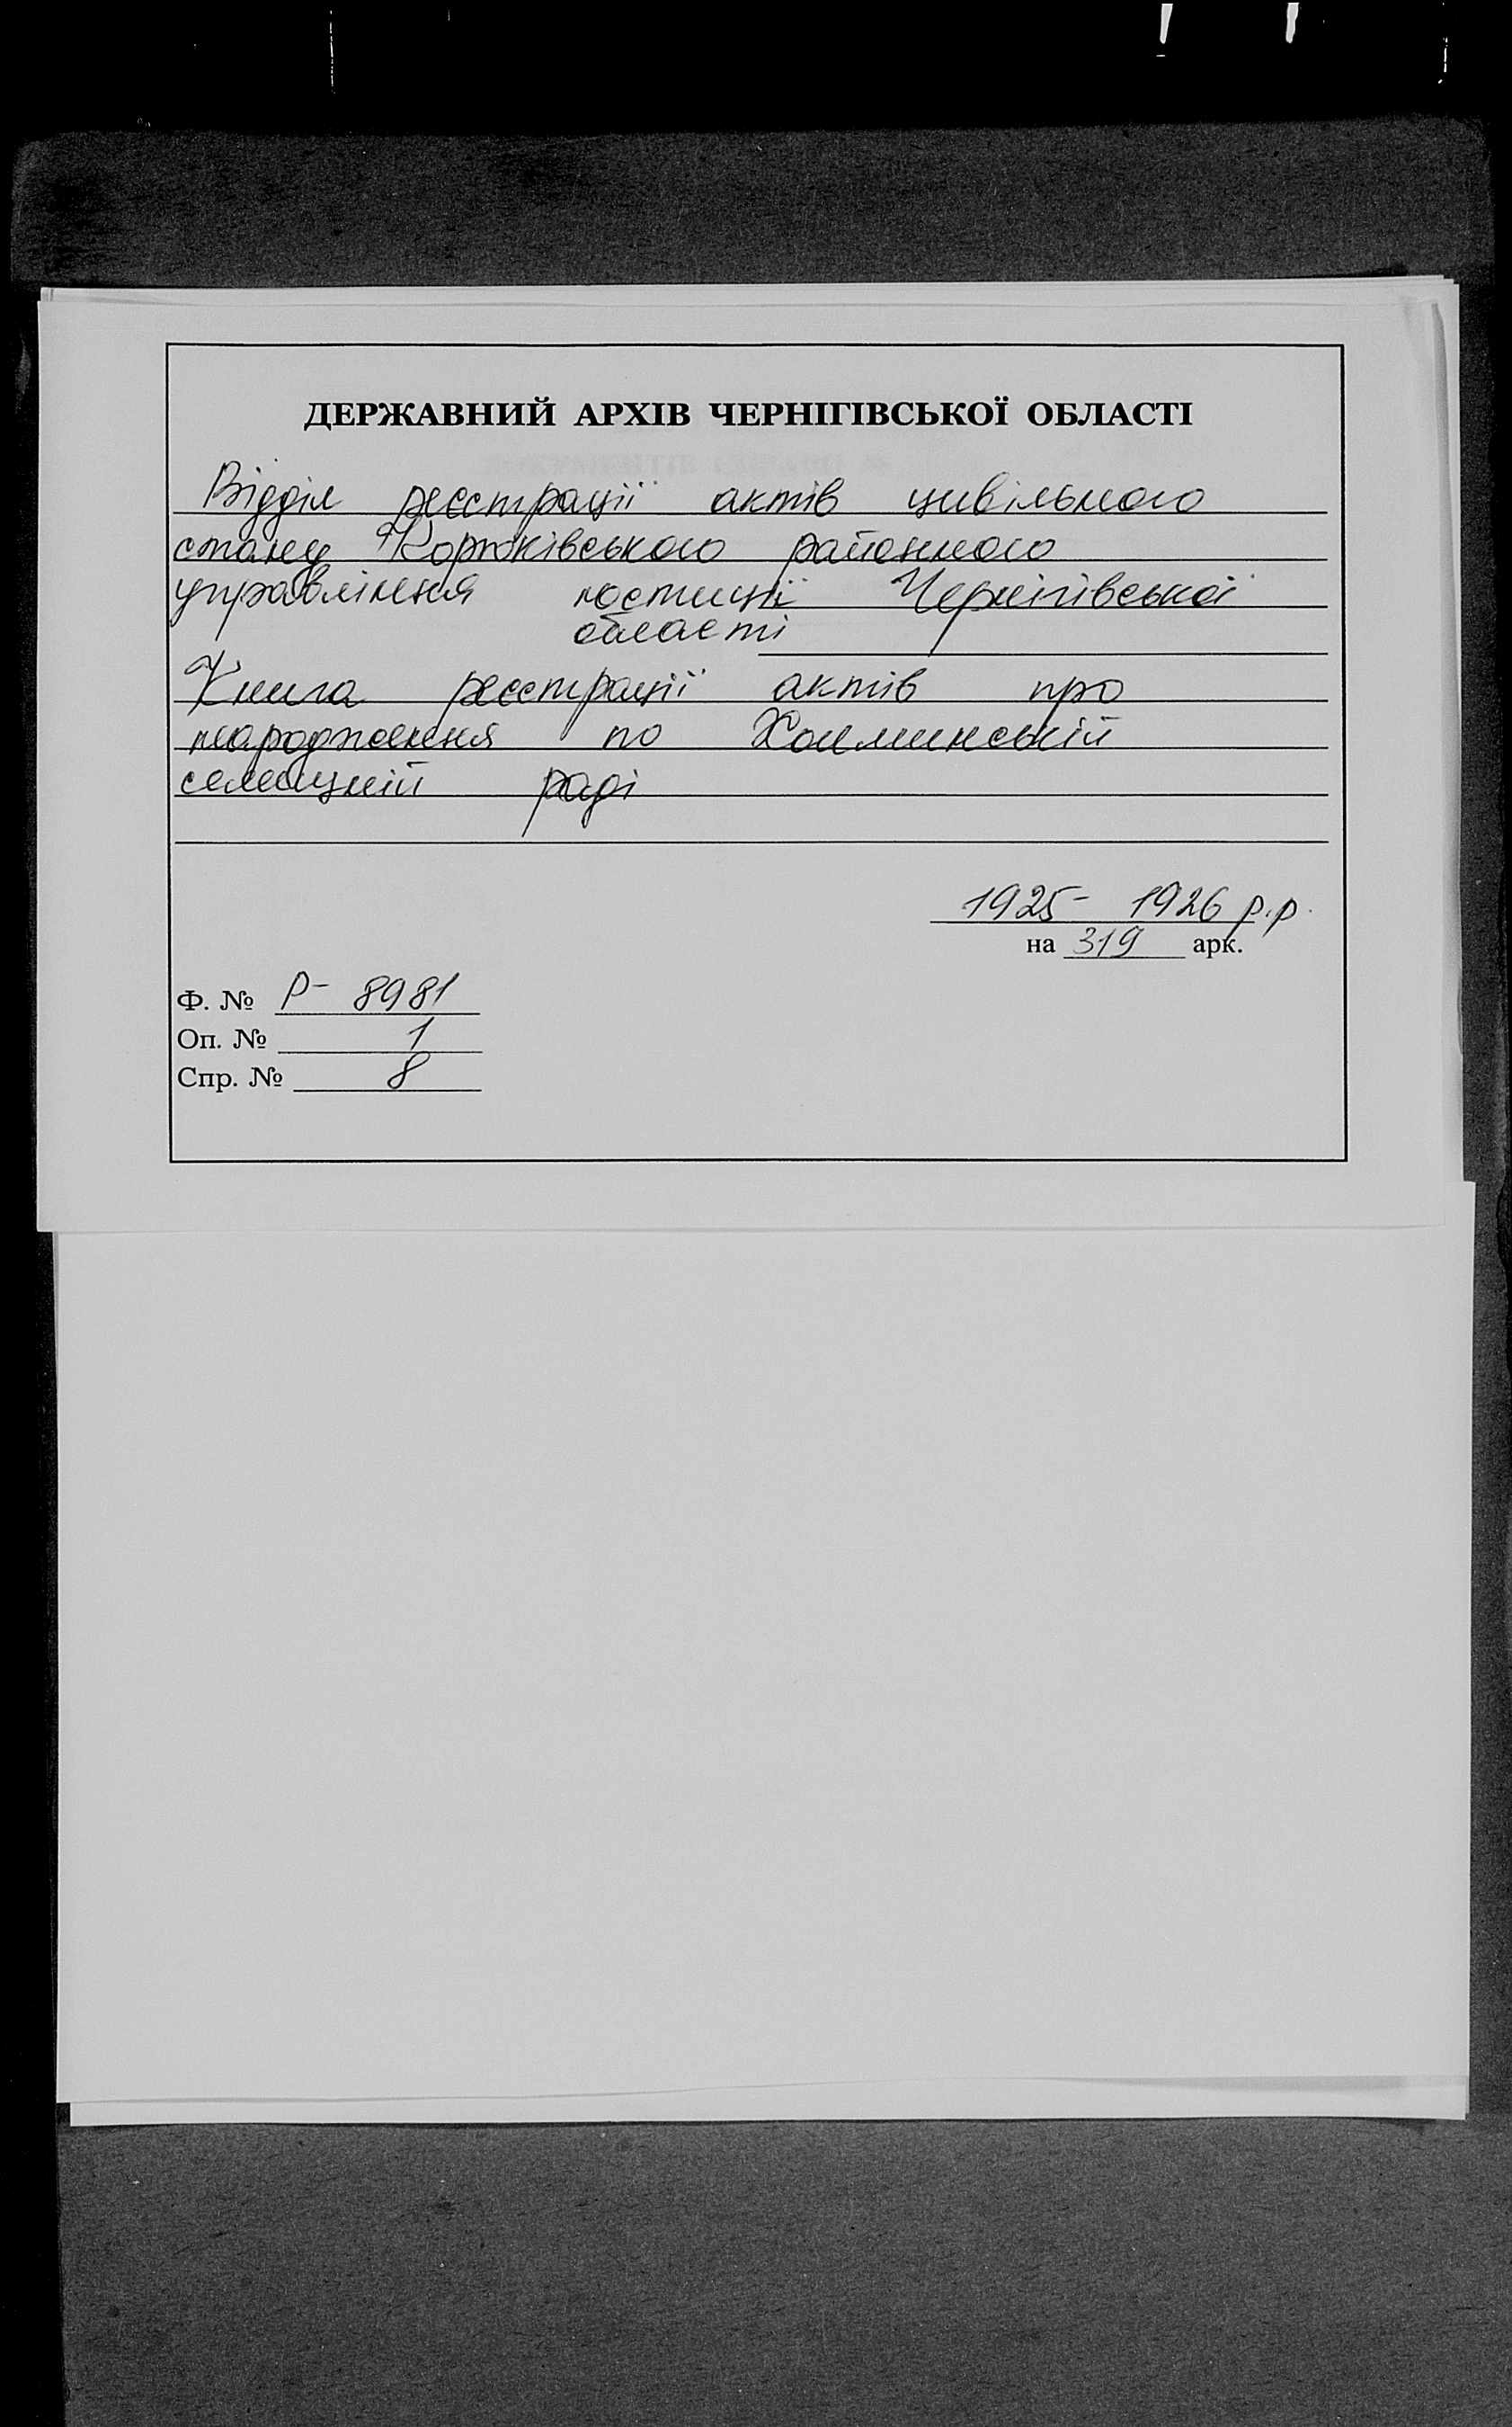 ДЕРЖАВНИЙ АРХІВ ЧЕРНІГІВСЬКОЇ ОБЛАСТІ
Відділ реєстрації актів цивільного
стану Корюківського районного
управління юстиції Чернігівської
області
Книга реєстрації актів про
народження по Холминській
селищній раді
1925- 1926 р.р.
на 319 арк.
Ф. № Р- 8981
Оп. № 1
Спр. № 8